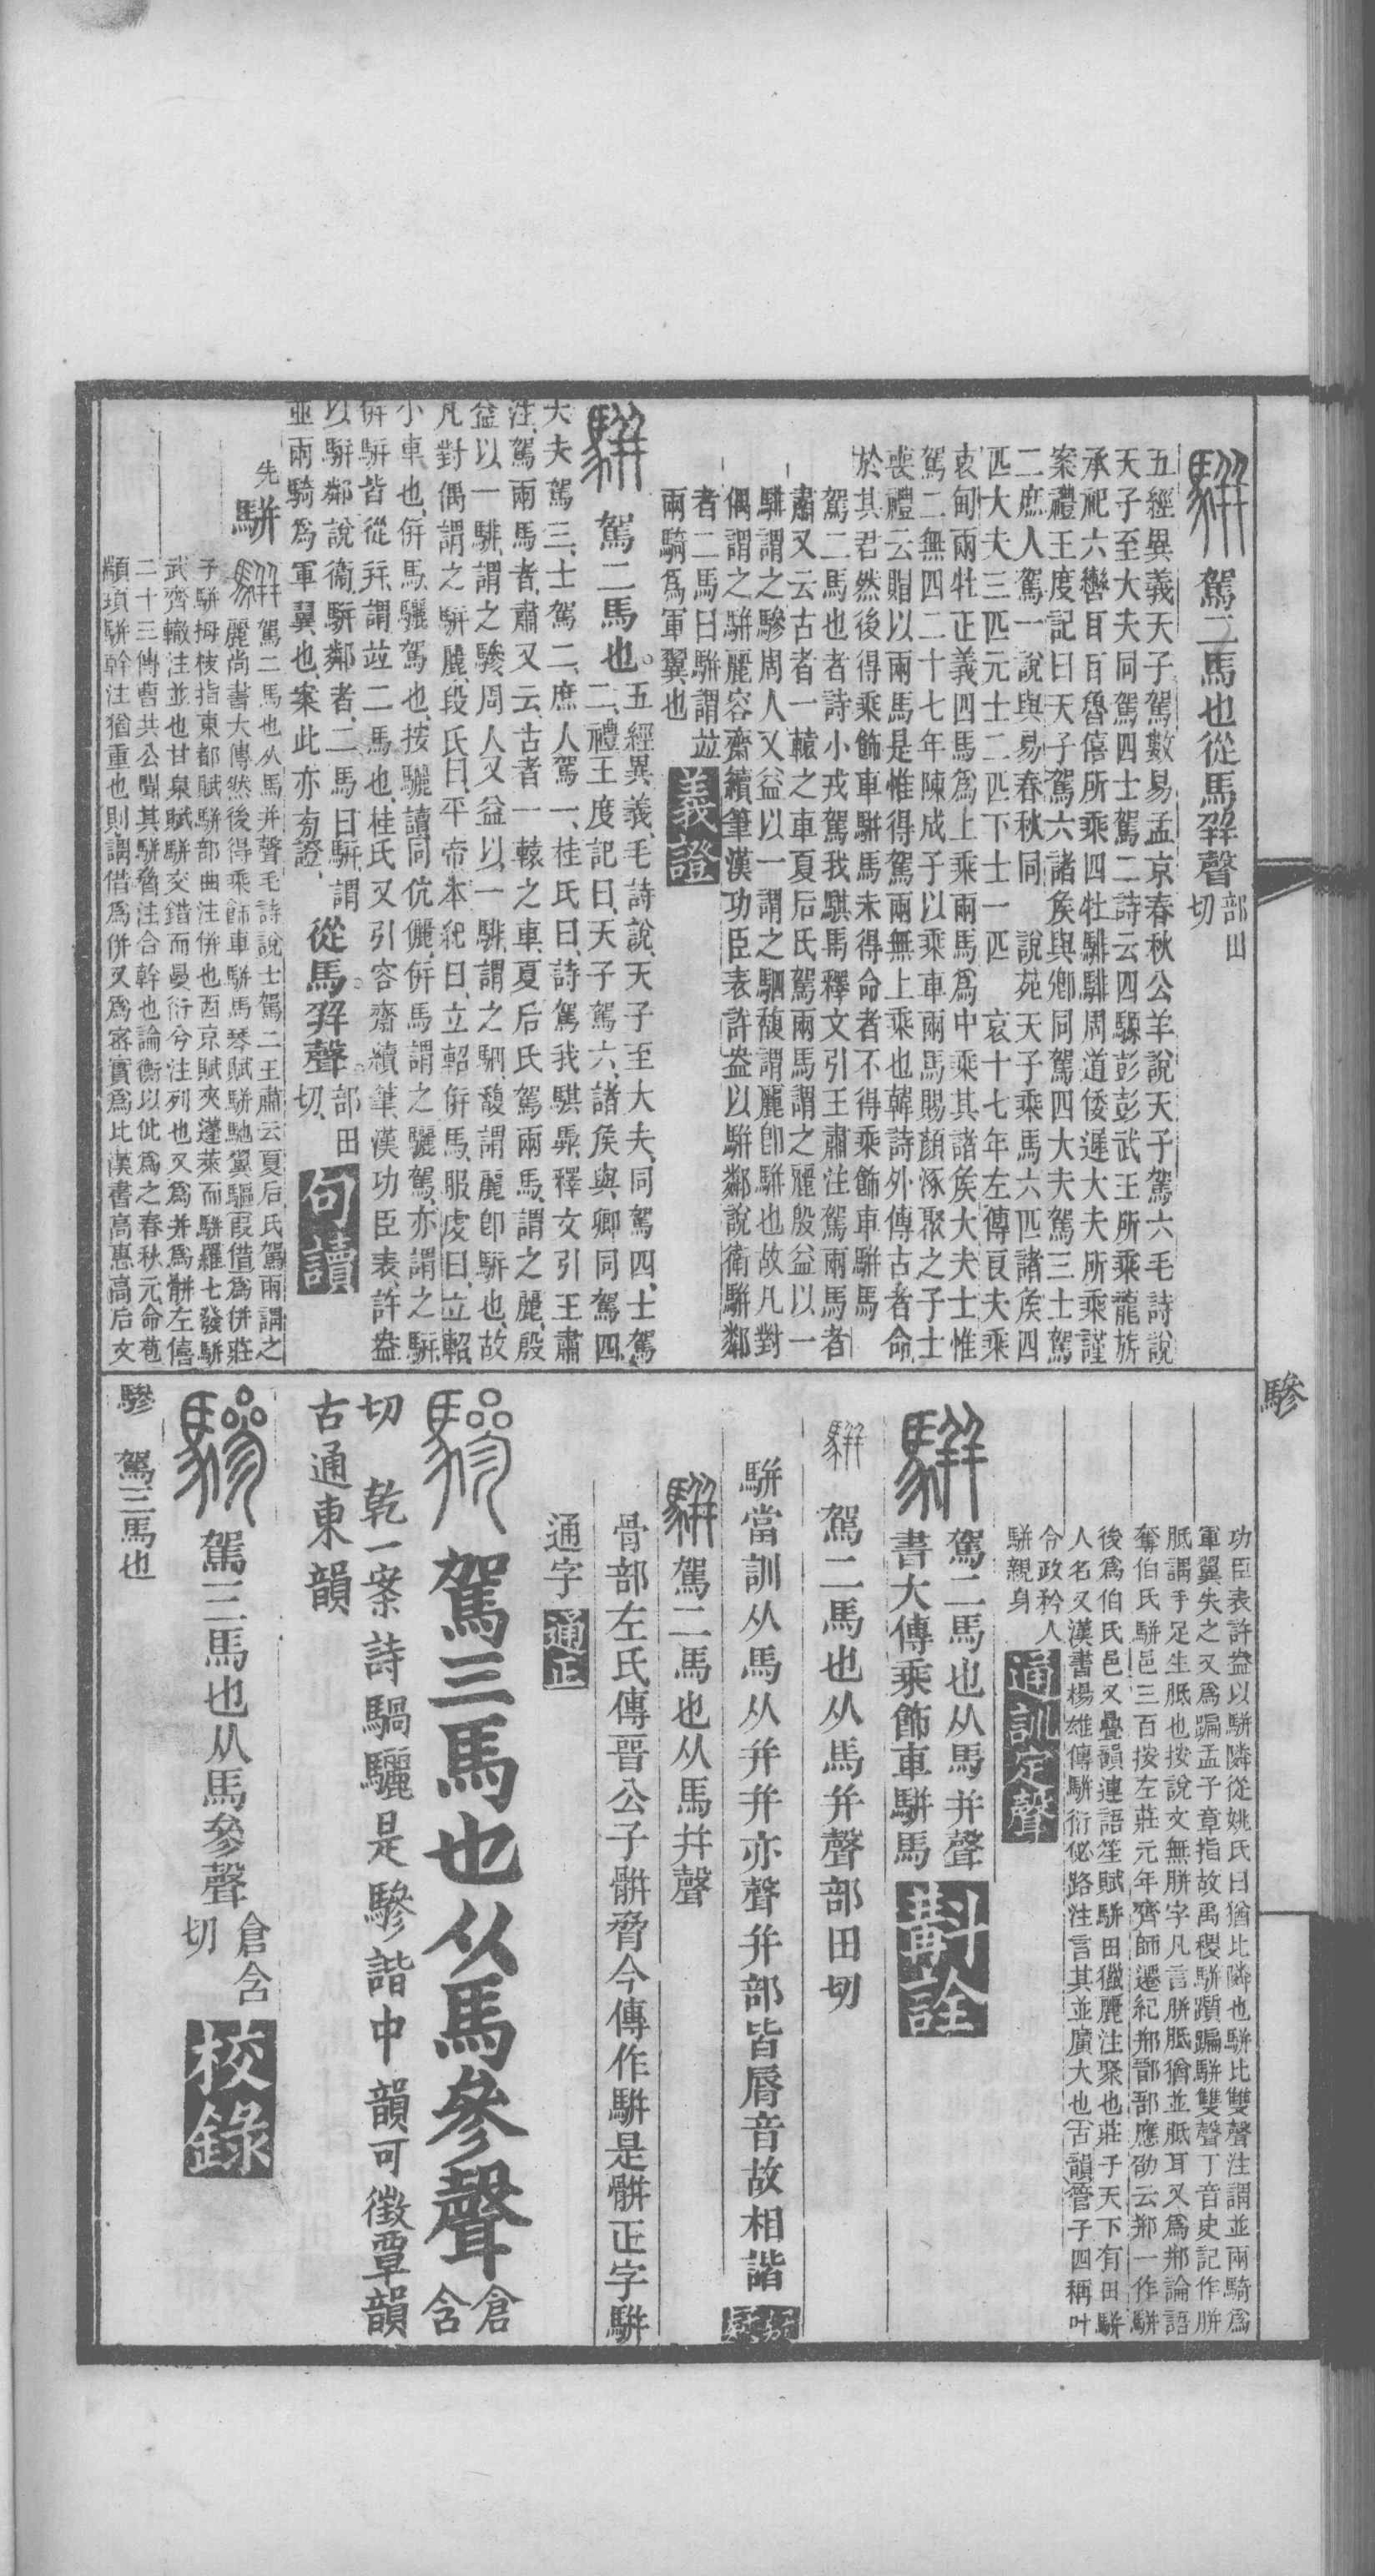 駕二馬也從馬并聲部田切
五經異義天子駕數易孟京春秋公羊說天子駕六毛詩說
天子至大夫同駕四士駕二詩云四騵彭彭武王所乘龍旂
承祀六轡耳耳魯僖所乘四牡騑騑周道倭遲大夫所乘謹
案禮王度記曰天子駕六諸矦與卿同駕四大夫駕三士駕
二庶人駕一說與易春秋同 說苑天子乘馬六匹諸矦四
匹大夫三匹元士二匹下士一匹 哀十七年左傳良夫乘
衷甸兩牡正義四馬為上乘兩馬為中乘其諸矦大夫士惟
駕二無四二十七年陳成子以乘車兩馬賜顏涿聚之子士
喪禮云賵以兩馬是惟得駕兩無上乘也韓詩外傳古者命
於其君然後得乘飾車駢馬未得命者不得乘飾車駢馬
駕二馬也者詩小戎駕我騏馬釋文引王肅注駕兩馬者
肅又云古者一轅之車夏后氏駕兩馬謂之麗殷益以一
騑謂之驂周人又益以一謂之駟馥謂麗卽駢也故凡對
偶謂之駢麗容齋續筆漢功臣表許盎以駢鄰說衞駢鄰
者二馬曰駢謂竝
兩騎為軍翼也
義證
駕二馬也。五經異義、毛詩說、天子至大夫、同駕四、士駕
二、禮王度記曰、天子駕六、諸矦與卿同駕四、
大夫駕三、士駕二、庶人駕一、桂氏曰、詩駕我騏馵、釋文引王肅
注、駕兩馬者、肅又云、古者一轅之車、夏后氏駕兩馬、謂之麗、殷
益以一騑、謂之驂、周人又益以一騑、謂之駟、馥謂麗卽駢也、故
凡對偶謂之駢麗、段氏曰、平帝本紀曰、立軺併馬、服虔曰、立軺、
小車也、併馬、驪駕也、按驪讀同伉儷、併馬謂之驪駕、亦謂之駢、
併駢皆從幷、謂竝二馬也、桂氏又引容齋續筆、漢功臣表、許盎
以駢鄰說衞、駢鄰者、二馬曰駢、謂
並兩騎為軍翼也、案此亦㫄證、
從馬。幷聲。部田切、
句讀
先 駢 駕二馬也从馬并聲毛詩說士駕二王肅云夏后氏駕兩謂之
麗尚書大傳然後得乘飾車駢馬琴賦駢馳翼驅叚借為併莊
子駢拇枝指東都賦駢部曲注併也西京賦夾蓬萊而駢羅七發駢
武齊轍注並也甘泉賦駢交錯而曼衍兮注列也又為并為骿左僖
二十三傳曹共公聞其駢脅注合幹也論衡以仳為之春秋元命苞
顓頊駢幹注猶重也則謂借為併又為宷實為比漢書高惠高后文
功臣表許盎以駢隣從姚氏曰猶比隣也駢比雙聲注謂並兩騎為
軍翼失之又為蹁孟子章指故禹稷駢躓蹁駢雙聲丁音史記作胼
胝謂手足生胝也按說文無胼字凡言胼胝猶並胝耳又為郱論語
奪伯氏駢邑三百按左莊元年齊師遷紀郱鄑郚應劭云郱一作駢
後為伯氏邑又疊韻連語笙賦駢田獵麗注聚也莊子天下有田駢
人名又漢書楊雄傳駢衍佖路注言其並廣大也古韻管子四稱叶
令政矜人
駢親身
通訓定聲
駕二馬也从馬并聲
書大傳乘飾車駢馬
斠詮
駕二馬也从馬幷聲部田切
駢當訓从馬从并并亦聲并部皆脣音故相諧
駕二馬也从馬并聲
骨部左氏傳晉公子骿脅今傳作駢是骿正字駢
通字
通正
駕三馬也从馬參聲倉含
切 乾一案詩騧驪是驂諧中韻可徵覃韻
古通東韻
駕三馬也从馬參聲倉含切
校錄
驂 駕三馬也
驂